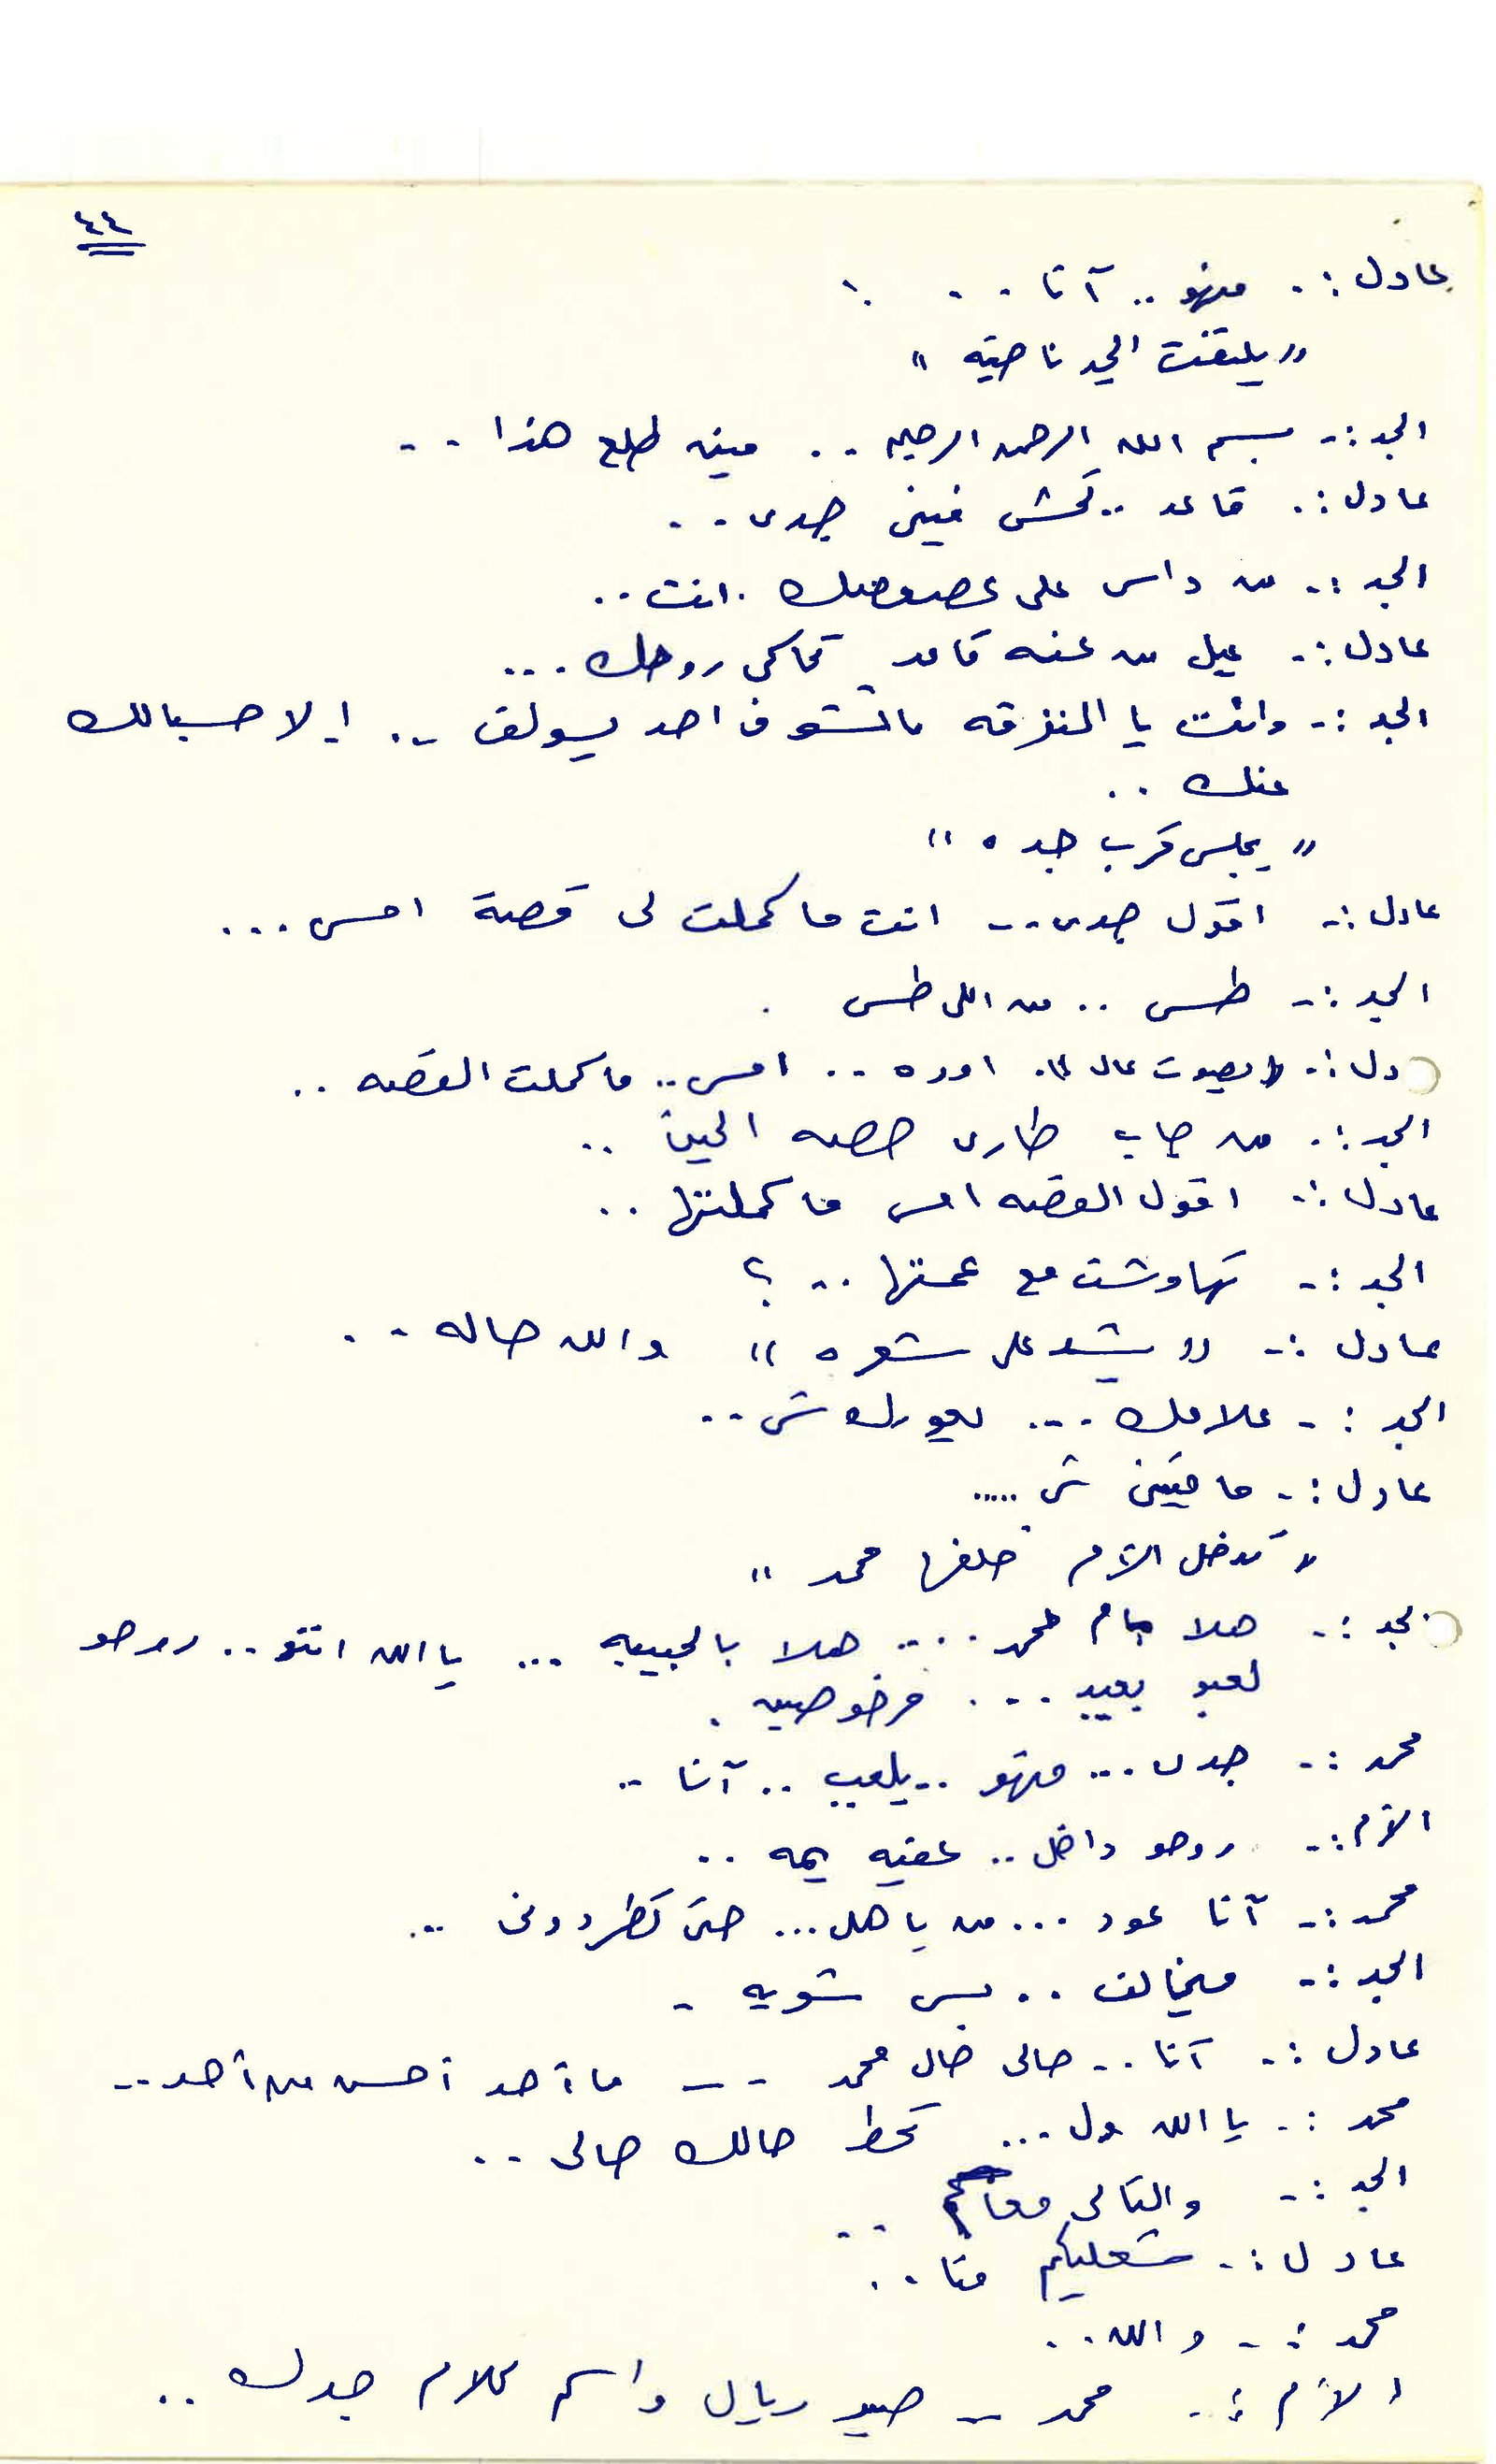 ٤٤
عادل :- منهو .. آنا . . .
" يلتفت الجد ناحيته "
الجد :- بسم الله الرحمن الرحيم .. مينه طلع هذا . .
عادل :- قاعد .. تحش فيني جدى . .
الجد :- من داس على عصوصك . انت ..
عادل :- عيل من عنه قاعد تحاكى روحك ...
الجد :- وانت يا المنزقه ماتشوف احد يسولف .. ! لا حسبالك
عنك ..
" يجلس قرب جده "
عادل :- اقول جدى .. انت ما كملت لى قصة امس ...
الجد :- طس .. من اللى طس .
دل :- " بصوت عال " اوره .. امس .. ما كملت القصه ..
الجد :- من جاب طارى حصه الحين ..
عادل :- اقول القصه امس ما كملتها ..
الجد :- تهاوشت مع عمتها .. ؟
عادل :- " يشد على شعره " والله حاله . .
الجد :- علامك ... يعورك شى ..
عادل :- ما فينى شى .....
" تدخل الأم خلفها محمد "
لجد :- هلا بأم محمد .... هلا بالحبيبه ... يا الله انتو .. روحو
لعبو بعيد ... مرخوصين .
محمد :- جدى ... منهو .. يلعب .. آنا ..
الأم :- روحو داخل .. عفيه يمه ..
محمد :- آنا عود ... من ياهل ... حتى تطردونى ..
الجد :- ميخالف .. بس شويه -
عادل :- آنا .. حالى حال محمد - - ما أحد أحسن من أحد ..
محمد :- يا الله ول ... تحط حالك حالى ..
الجد :- والتالى معاكم ..
عادل :- شعليكم منا ..
محمد :- والله ..
الأم :- محمد - صير ريال واسمع كلام جدك ..